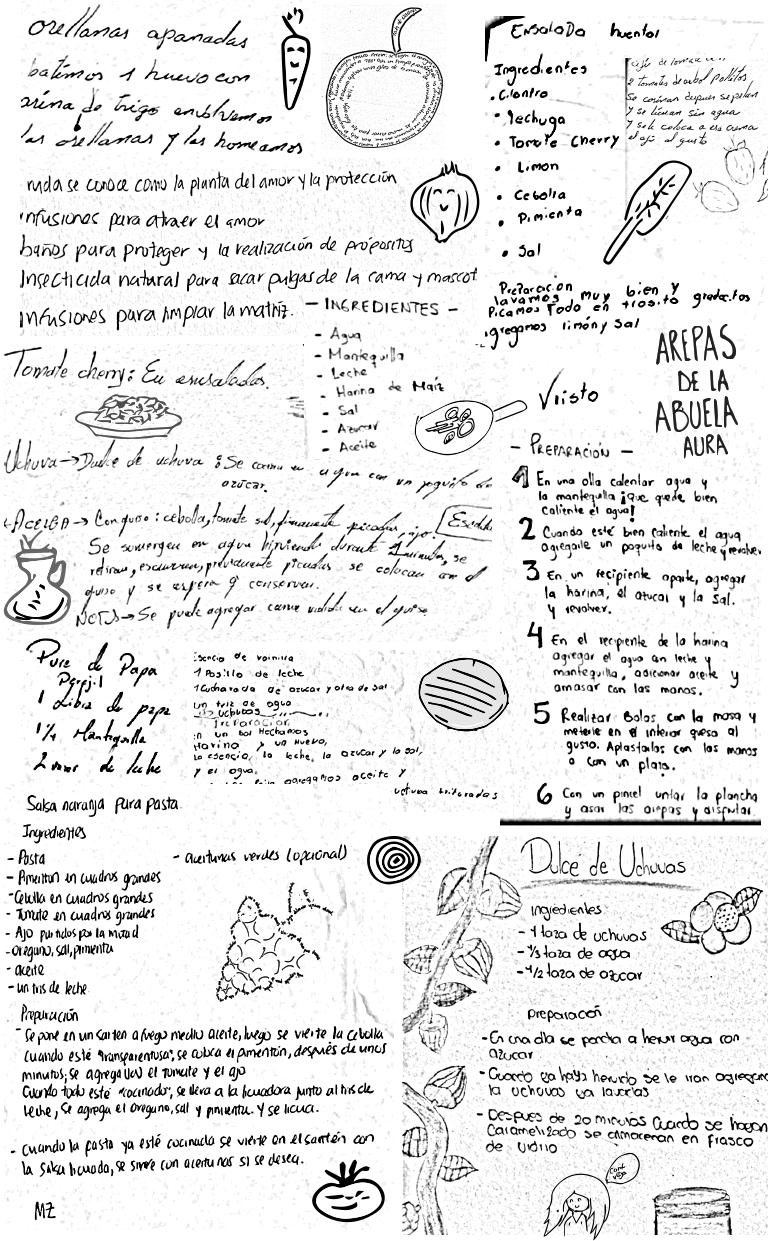 orellanas apanadas
batimos 1 huevo con
arina de trigo envolvemos
las orellanas y las horneamos
ruda se conoce como la planta del amor y la protección
infusiones para atraer el amor
baños para proteger y la realización de propósitos
Insecticida natural para sacar pulgas de la cama y mascot
Infusiones para limpiar la matriz.
Ensalada huerta
Ingredientes
• Cilantro
• lechuga
• Tomate Cherry
• Limon
• Cebolla
• Pimienta
• Sal
2 tomates de arbol
Se cocinan despues se pelan
y se licuan sin agua
y se le coloca a esa crema
el ají al gusto
Preparacion
lavamos muy bien y
Picamos Todo en trosito
agregamos limón y Sal
- INGREDIENTES -
- Agua
- Mantequilla
- Leche
- Harina de Maíz
- Sal
- Azucar
- Aceite
Tomate cherry: En ensaladas.
Uchuva → Dulce de uchuva : Se en agua con un poquito de
azúcar.
ACELGA → Con guiso: cebolla, tomate, sal, finamente picados, ajo.
Se sumergen en agua hirviendo durante 1 minuto, se
retiran, escurren, previamente picadas se colocan en el
guiso y se espera y conservan.
NOTA → Se puede agregar carne molida en el guiso.
AREPAS
DE LA
ABUELA
AURA
- PREPARACIÓN -
1 En una olla calentar agua y
la mantequilla ¡que quede bien
caliente el agua!
2 Cuando esté bien caliente el agua
agregarle un poquito de leche y revolver.
3 En un recipiente aparte, agregar
la harina, el azucar y la sal.
y revolver.
4 En el recipiente de la harina
agregar el agua con leche y
mantequilla, adicionar aceite y
amasar con las manos.
5 Realizar bolas con la masa y
meterle en el interior queso al
gusto. Aplastarlas con las manos
o con un plato.
6 Con un pincel untar la plancha
y asar las arepas y disfrutar.
Pure de Papa
Perejil
1 Libra de papa
1/4 Mantequilla
2 de leche
Esencia de vainilla
1 Pocillo de leche
1 Cucharada de azucar y otra de sal
un triz de agua
uchuvas
Preparacion
En un bol Hechamos
Harina y un Huevo,
la esencia, la leche, la azucar y la sal,
y el agua,
agregamos aceite y
uchuva trituradas
Salsa naranja para pasta.
Ingredientes
- Pasta
- Pimenton en cuadros grandes
- Cebolla en cuadros grandes
- Tomate en cuadros grandes
- Ajo partidos por la mitad
- oregano, sal, pimienta
- aceite
- un tris de leche.
- aceitunas verdes (opcional)
Preparación
- Se pone en un sarten a fuego medio aceite, luego se vierte la cebolla
cuando esté "transparentosa", se coloca el pimentón, después de unos
minutos; se agrega el tomate y el ajo
Cuando todo esté "cocinado", se lleva a la licuadora junto al tris de
leche, Se agrega el oregano, sal y pimienta. Y se licua.
- Cuando la pasta ya esté cocinada se vierte en el sartén con
la salsa licuada, se sirve con aceitunas si se desea.
MZ
Dulce de Uchuvas
Ingredientes
- 1 taza de uchuvas
- 1/3 taza de agua
- 1/2 taza de azucar
preparación
- En una olla se pone a hervir agua con
azucar
- Cuando ya haya hervido se le van agregando
la uchuvas ya lavadas
- Despues de 20 minutos Cuando se hayan
Caramelizado se almacenan en frasco
de vidrio